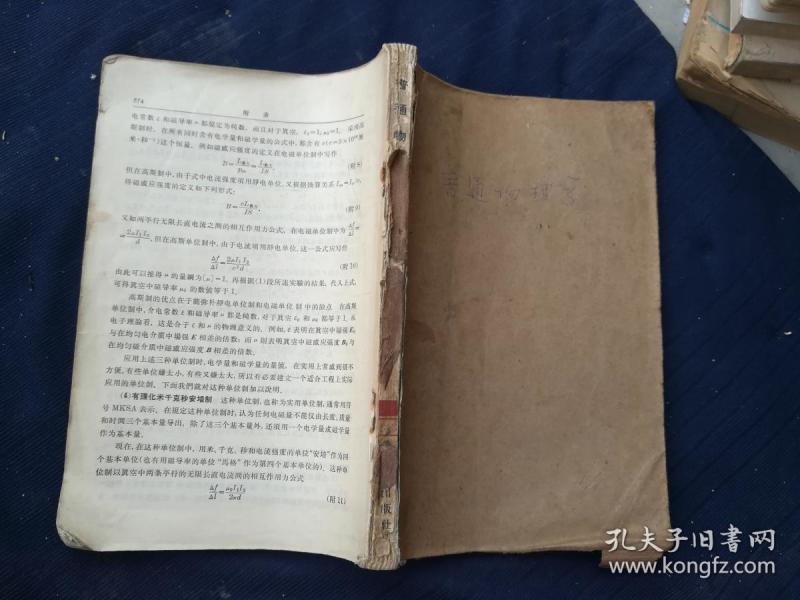 574
附录
电常数 ε 和磁导率 μ 都规定为纯数，而且对于真空，ε₀=1；μ₀=1。采用高
斯制时，在所有同时含有电学量和磁学量的公式中，都含有 c(c=3×10¹⁰厘
米·秒⁻¹)这个恒量。例如磁感应强度的定义在电磁单位制中写作
(附8)
但在高斯制中，由于式中电流强度须用静电单位，又根据换算关系
得磁感应强度的定义如下列形式：
(附9)
又如两平行无限长直电流之间的相互作用力公式，在电磁单位制中为 Δf/Δl
=2μI₁I₂/d，但在高斯单位制中，由于电流须用静电单位，这一公式应写作
Δf/Δl=2μI₁I₂/c²d (附10)
由此可以推得 μ 的量纲为[μ]=1。再根据(1)段所述实验的结果，代入上式，
可得真空中磁导率 μ₀ 的数值等于1。
高斯制的优点在于能弥补静电单位制和电磁单位制中的缺点 在高斯
单位制中，介电常数 ε 和磁导率 μ 都是纯数，对于真空 ε₀ 和 μ₀ 都等于1。从
电子理论看，这是合于 ε 和 μ 的物理意义的。例如，ε 表明在真空中场强E₀
与在均匀电介质中场强 E 相差的倍数；而 μ 则表明真空中磁感应强度 B₀ 与
在均匀磁介质中磁感应强度 B 相差的倍数。
应用上述三种单位制时，电学量和磁学量的量值，在实用上常感到很不
方便，有些单位嫌太小，有些又嫌太大，所以有必要建立一个适合工程上实际
应用的单位制。下面我们就对这种单位制加以说明。
(4)有理化米千克秒安培制 这种单位制，也称为实用单位制，通常用符
号 MKSA 表示。在规定这种单位制时，认为任何电磁量不能仅由长度、质量
和时间三个基本量导出。除了这三个基本量外，还须用一个电学量或磁学量
作为基本量。
现在，在这种单位制中，用米、千克、秒和电流强度的单位“安培”作为四
个基本单位(也有用磁导率的单位“马格”作为第四个基本单位的)。这种单
位制以真空中两条平行的无限长直电流间的相互作用力公式
Δf/Δl=μ₀I₁I₂/2πd (附11)
普通物
出版社
普通物理学
孔夫子旧书网
www.kongfz.com